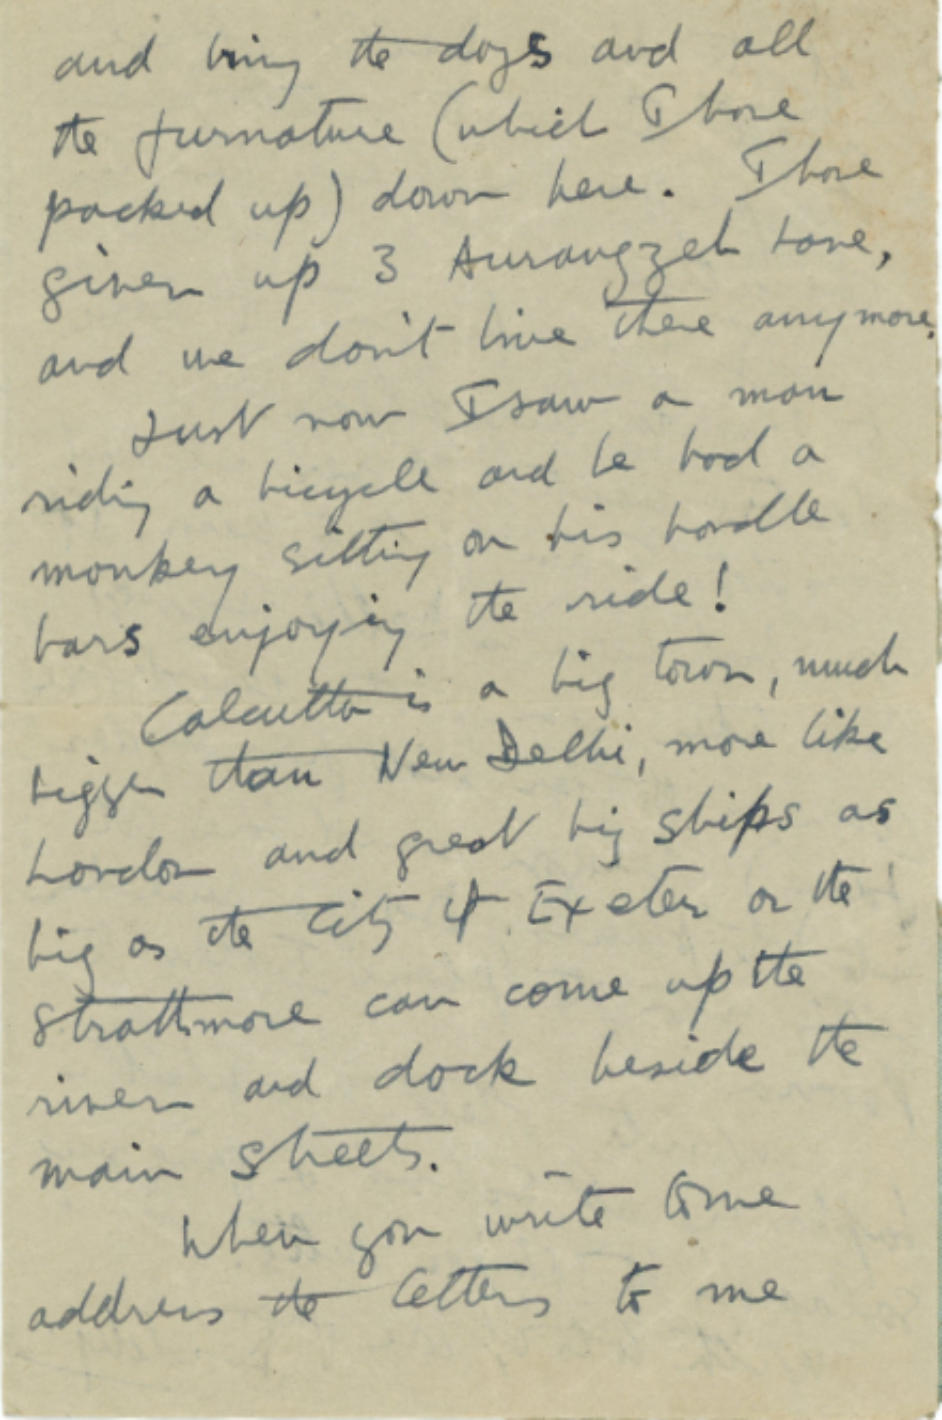 and bring the dogs and all
the furnature (which I have
packed up) down here. I have
given up 3 Aurangzeb Lane,
and we don't live there anymore.
Just now I saw a man
riding a bicycle and he had a
monkey sitting on his handle
bars enjoying the ride!
Calcutta is a big town, much
bigger than New Delhi, more like
London and great big ships as
big as the City of Exeter or the
Strathmore can come up the
river and dock beside the
main streets.
When you write to me
address the letters to me